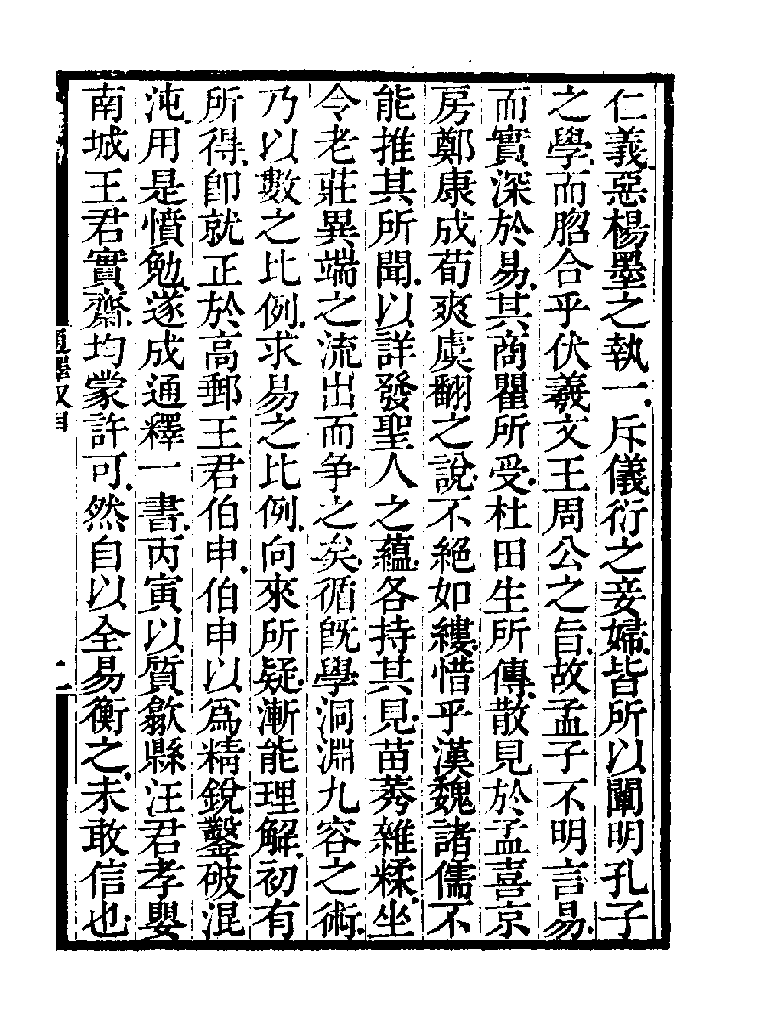 仁義惡楊墨之執一斥儀衍之妾婦皆所以闡明孔子
之學而脗合乎伏羲文王周公之旨故孟子不明言易
而實深於易其商瞿所受杜田生所傳散見於孟喜京
房鄭康成荀爽虞翻之說不絕如縷惜乎漢魏諸儒不
能推其所聞以詳發聖人之蘊各持其見苗莠雜糅坐
令老莊異端之流出而争之矣循旣學洞淵九容之術
乃以數之比例求易之比例向來所疑漸能理解初有
所得卽就正於高郵王君伯申伯申以爲精銳鑿破混
沌用是憤勉遂成通釋一書丙寅以質歙縣汪君孝嬰
南城王君實齋均蒙許可然自以全易衡之未敢信也
通釋叙目
二